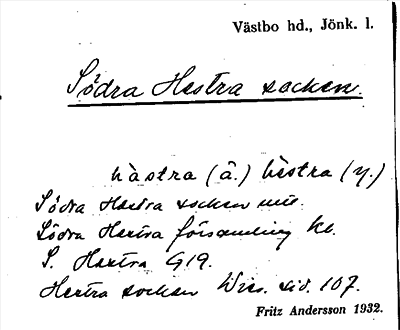 Västbo hd., Jönk. l.
Södra Hestra socken.
hàstra (ä.) hèstra (y.)
Södra Hestra socken
Södra Hestra församling kb.
S. Hestra G19.
Hestra socken Wies. sid. 107.
Fritz Andersson 1932.